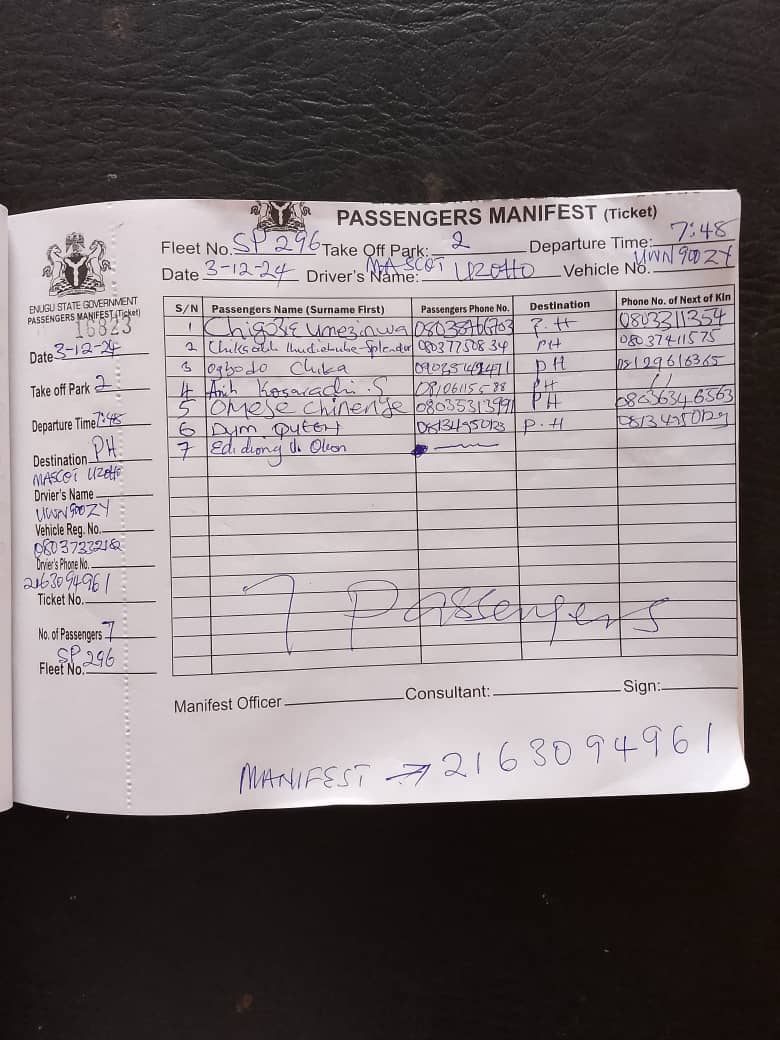 ENUGU STATE GOVERNMENT
PASSENGERS MANIFEST (Ticket)
16823
Date 3-12-24
Take off Park 2
Departure Time 7:48
Destination PH
MASCOT UZOTTO
Drvier's Name
UWN 900ZY
Vehicle Reg. No.
Drvier's Phone No.
2163094961
Ticket No.
No. of Passengers 7
SP 296
Fleet No.
PASSENGERS MANIFEST (Ticket)
Fleet No. SP 296 Take Off Park: 2 Departure Time: 7:48
Date 3-12-24 Driver's Name: MASCOT UZOTTO Vehicle No. UWN 900ZY
S/N Passengers Name (Surname First) Passengers Phone No. Destination Phone No. of Next of Kin
1 Chigozie Umezinwa P.H 0803311354
2 PH 08037411575
3 Ogbodo Chika PH 08129616365
4 Anih 08106115588 PH 11
5 Omeje Chinenye 08035313991 PH 08063646563
6 08134950123 P.H 08134950123
7 Edidiong U. Okon
7 Passengers
Manifest Officer Consultant: Sign:
MANIFEST → 2163094961